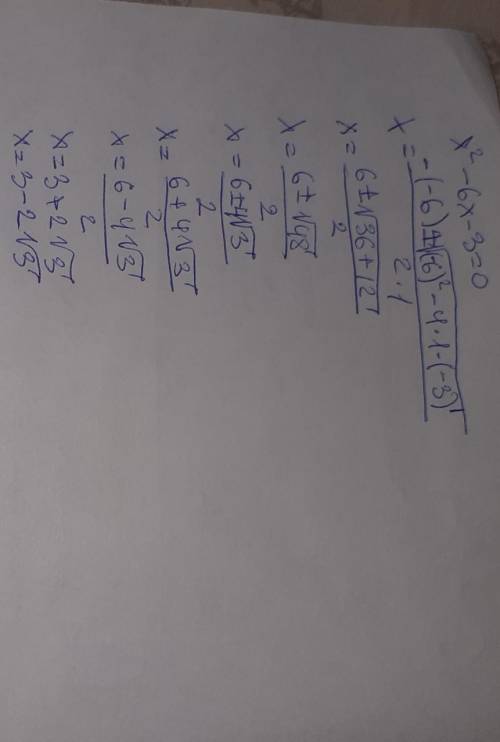 x² - 6x - 3 = 0
x = -(-6) ± √(-6)² - 4 · 1 · (-3) / 2 · 1
x = 6 ± √36 + 12 / 2
x = 6 ± √48 / 2
x = 6 ± 4√3 / 2
x = 6 + 4√3 / 2
x = 6 - 4√3 / 2
x = 3 + 2√3
x = 3 - 2√3